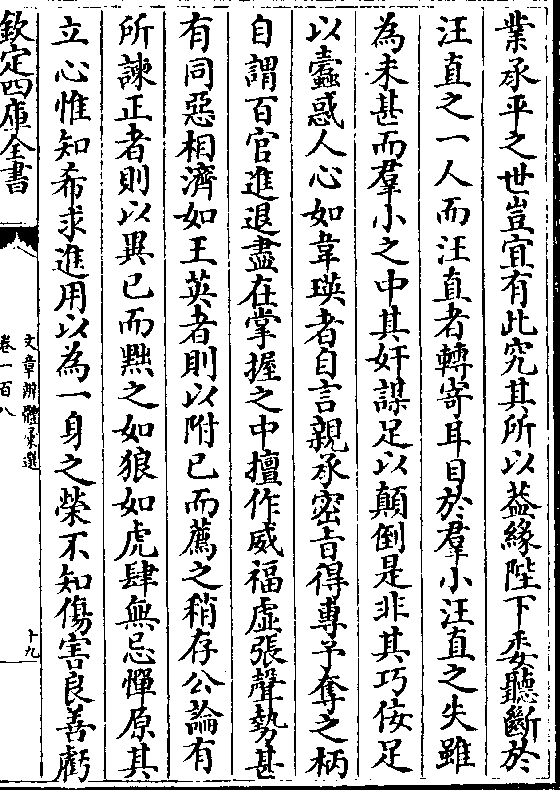 業承平之世豈宜有此究其所以葢緣陛下委聽斷於
汪直之一人而汪直者轉寄耳目於羣小汪直之失雖
為未甚而羣小之中其奸謀足以顛倒是非其巧佞足
以蠹惑人心如韋瑛者自言親承密旨得專予奪之柄
自謂百官進退盡在掌握之中擅作威福虛張聲勢甚
有同惡相濟如王英者則以附已而薦之稍存公論有
所諫正者則以異已而黜之如狼如虎肆無忌憚原其
立心惟知希求進用以為一身之榮不知傷害良善虧
欽定四庫全書
文章辨體彙選
卷一百八
十九